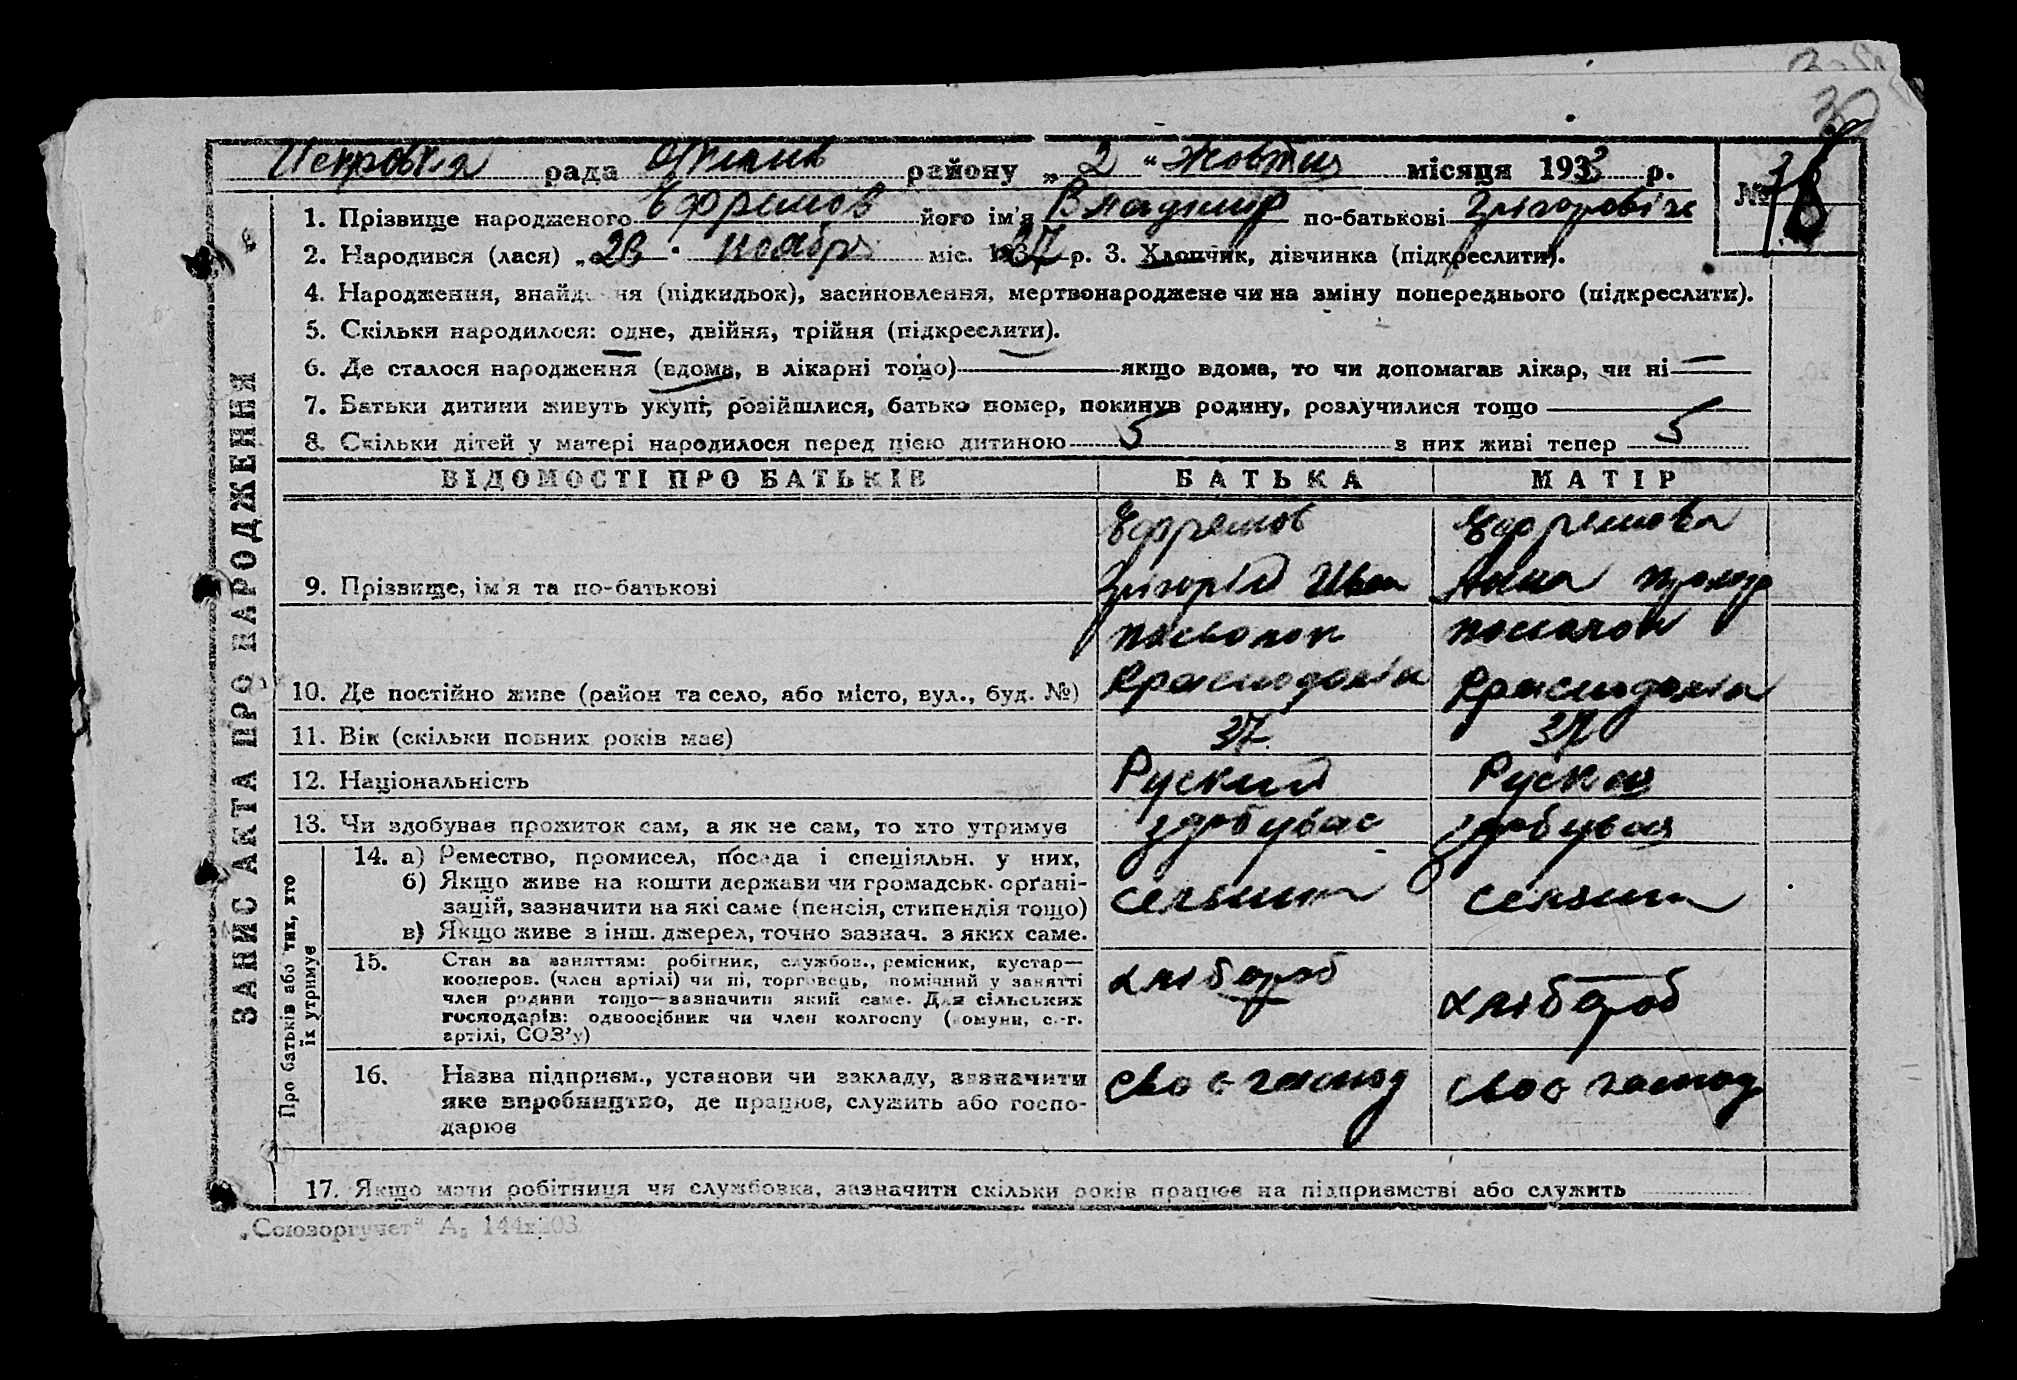 рада району „ 2 " Жовтня місяця 1933 р. №
1. Прізвище народженого Ефремов його ім'я Владімір по-батькові Грігоровіч
2. Народився (лася) „ 23 " ноября міс. 1927 р. 3. Хлопчик, дівчинка (підкреслити).
4. Народження, знайдення (підкидьок), засиновлення, мертвонароджене чи на зміну попереднього (підкреслити).
5. Скільки народилося: одне, двійня, трійня (підкреслити).
6. Де сталося народження (вдома, в лікарні тощо) якщо вдома, то чи допомагав лікар, чи ні —
7. Батьки дитини живуть укупі, розійшлися, батько помер, покинув родину, розлучилися тощо
8. Скільки дітей у матері народилося перед цією дитиною 5 з них живі тепер 5
ВІДОМОСТІ ПРО БАТЬКІВ БАТЬКА МАТІР
Ефремов Ефремова
9. Прізвище, ім'я та по-батькові Грігорій Иван Анна
10. Де постійно живе (район та село, або місто, вул., буд. №)
11. Вік (скільки повних років має) 37 37
12. Національність Руский Руская
13. Чи здобуває прожиток сам, а як не сам, то хто утримує здобуває здобувая
14. а) Ремество, промисел, посада і спеціяльн. у них,
б) Якщо живе на кошти держави чи громадськ. органі-
зацій, зазначити на які саме (пенсія, стипендія тощо)
в) Якщо живе з інш. джерел, точно зазнач. з яких саме.
15. Стан за заняттям: робітник, службов., ремісник, кустар—
кооперов. (член артілі) чи ні, торговець, помічний у занятті
член родини тощо—зазначити який саме. Для сільських
господарів: одноосібник чи член колгоспу (комуни, с.-г.
артілі, СОЗ'у)
хлібороб хлібороб
16. Назва підприєм., установи чи закладу, зазначити
яке виробництво, де працює, служить або госпо-
дарює
своє господ своє господ
17. Якщо мати робітниця чи службовка, зазначити скільки років працює на підприємстві або служить
ЗАПИС АКТА ПРО НАРОДЖЕННЯ
Про батьків або тих, хто
їх утримує
„Союзоргучет"